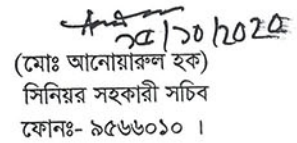 ২৫/১০/২০২০
(মোঃ আনোয়ারুল হক)
সিনিয়র সহকারী সচিব
ফোনঃ- ৯৫৬৬০১০ ।